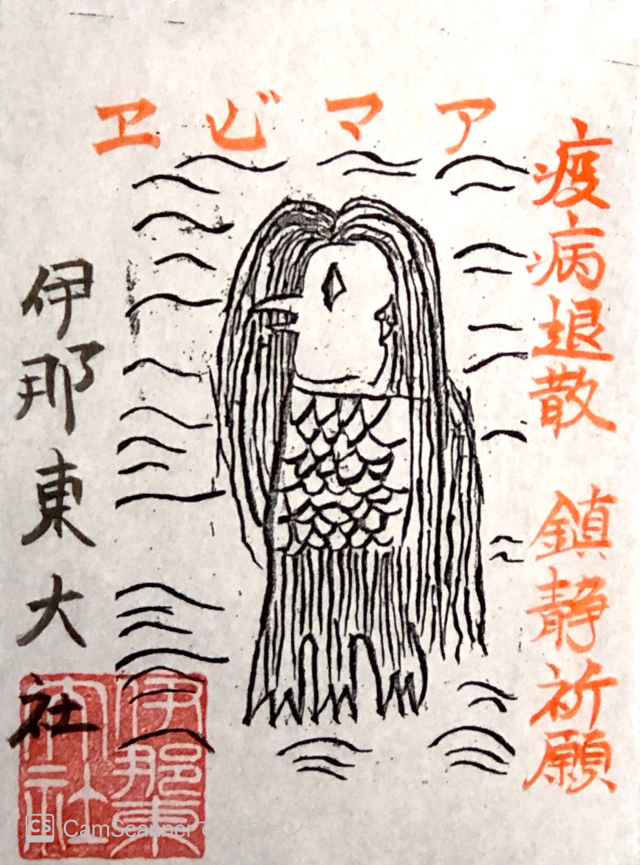 アマビヱ
疫病退散 鎮静祈願
伊那東大社
伊那東
大社
CS CamScanner